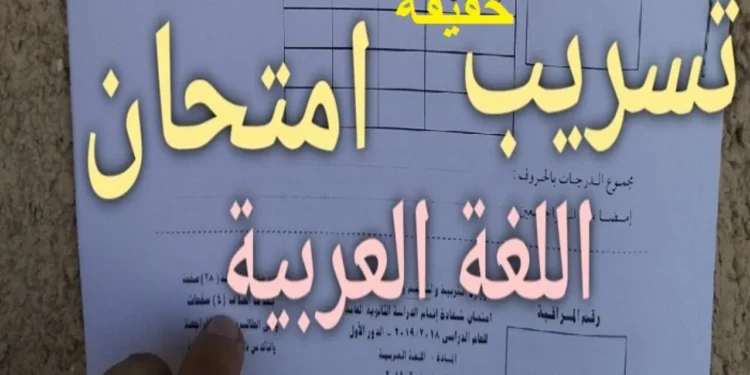 حقيقة
تسريب امتحان
مجموع الدرجات بالحروف :
إمضا
اللغة العربية
(٢٨) صفحة
(٤) صفحات
رقم المراقبة
امتحان شهادة إتمام الدراسة الثانوية العامة
للعام الدراسى ٢٠١٩/٢٠١٨ - الدور الأول
المادة : اللغة العربية